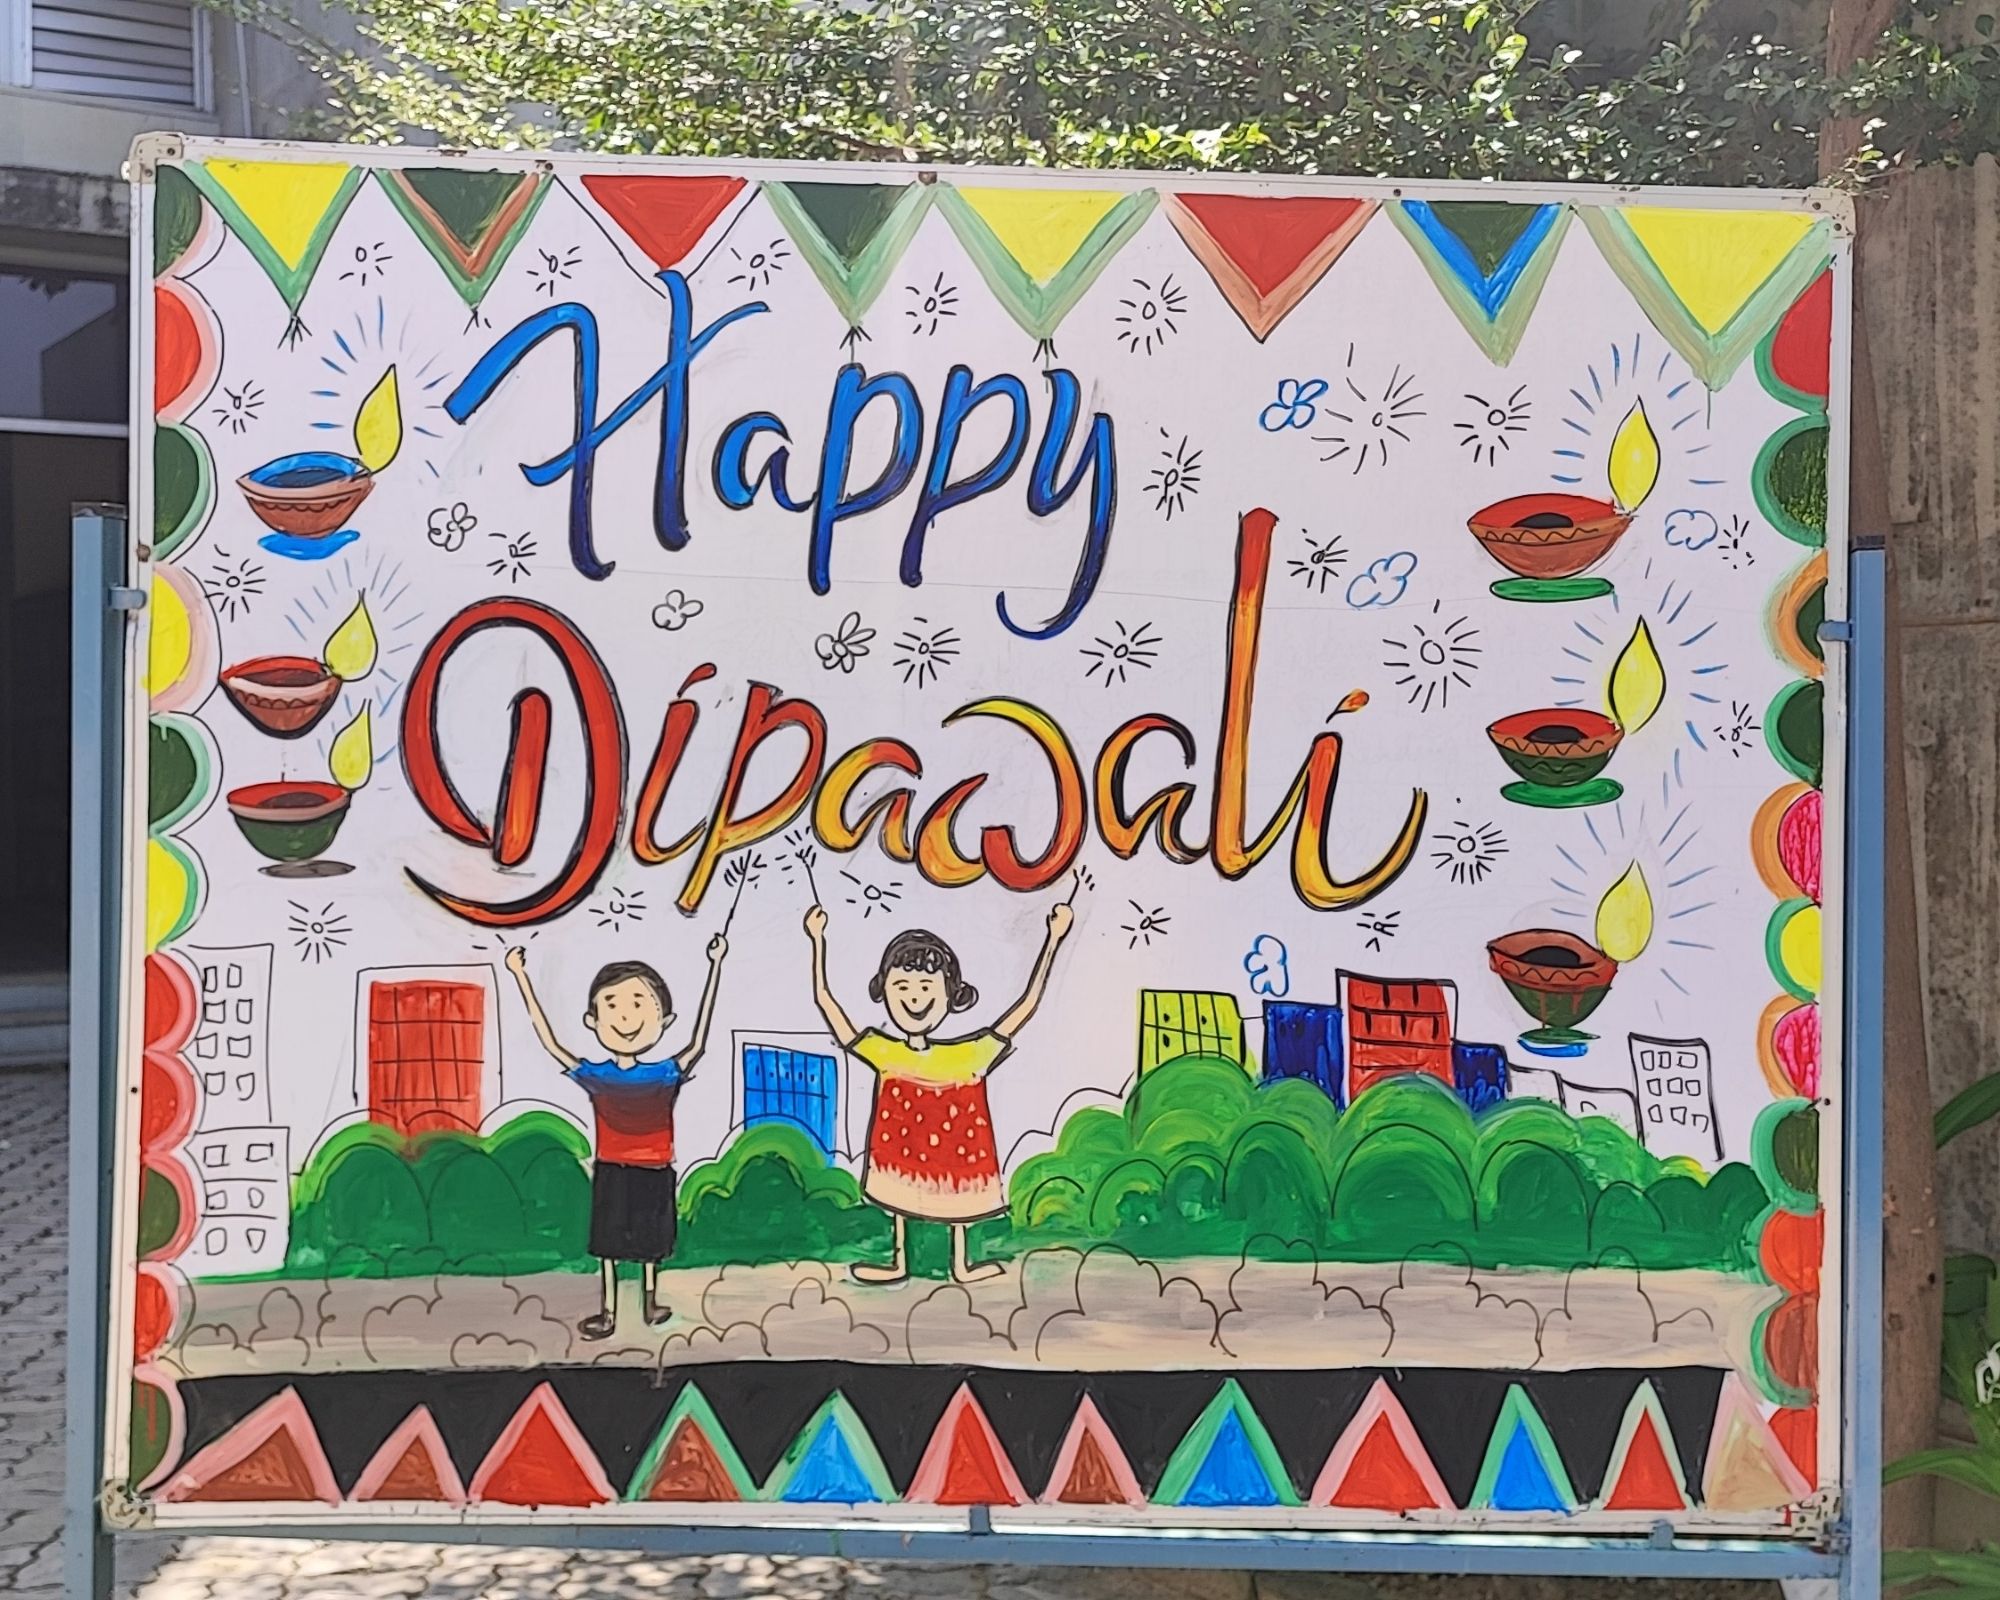 Happy
Dipawali